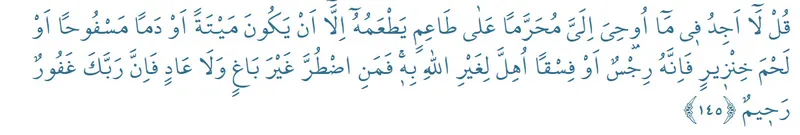 قُلْ لَٓا اَجِدُ ف۪ي مَٓا اُو۫حِيَ اِلَيَّ مُحَرَّمًا عَلٰى طَاعِمٍ يَطْعَمُهُٓ اِلَّٓا اَنْ يَكُونَ مَيْتَةً اَوْ دَمًا مَسْفُوحًا اَوْ
لَحْمَ خِنْز۪يرٍ فَاِنَّهُ رِجْسٌ اَوْ فِسْقًا اُهِلَّ لِغَيْرِ اللّٰهِ بِه۪ۚ فَمَنِ اضْطُرَّ غَيْرَ بَاغٍ وَلَا عَادٍ فَاِنَّ رَبَّكَ غَفُورٌ
رَح۪يمٌ ﴿١٤٥﴾